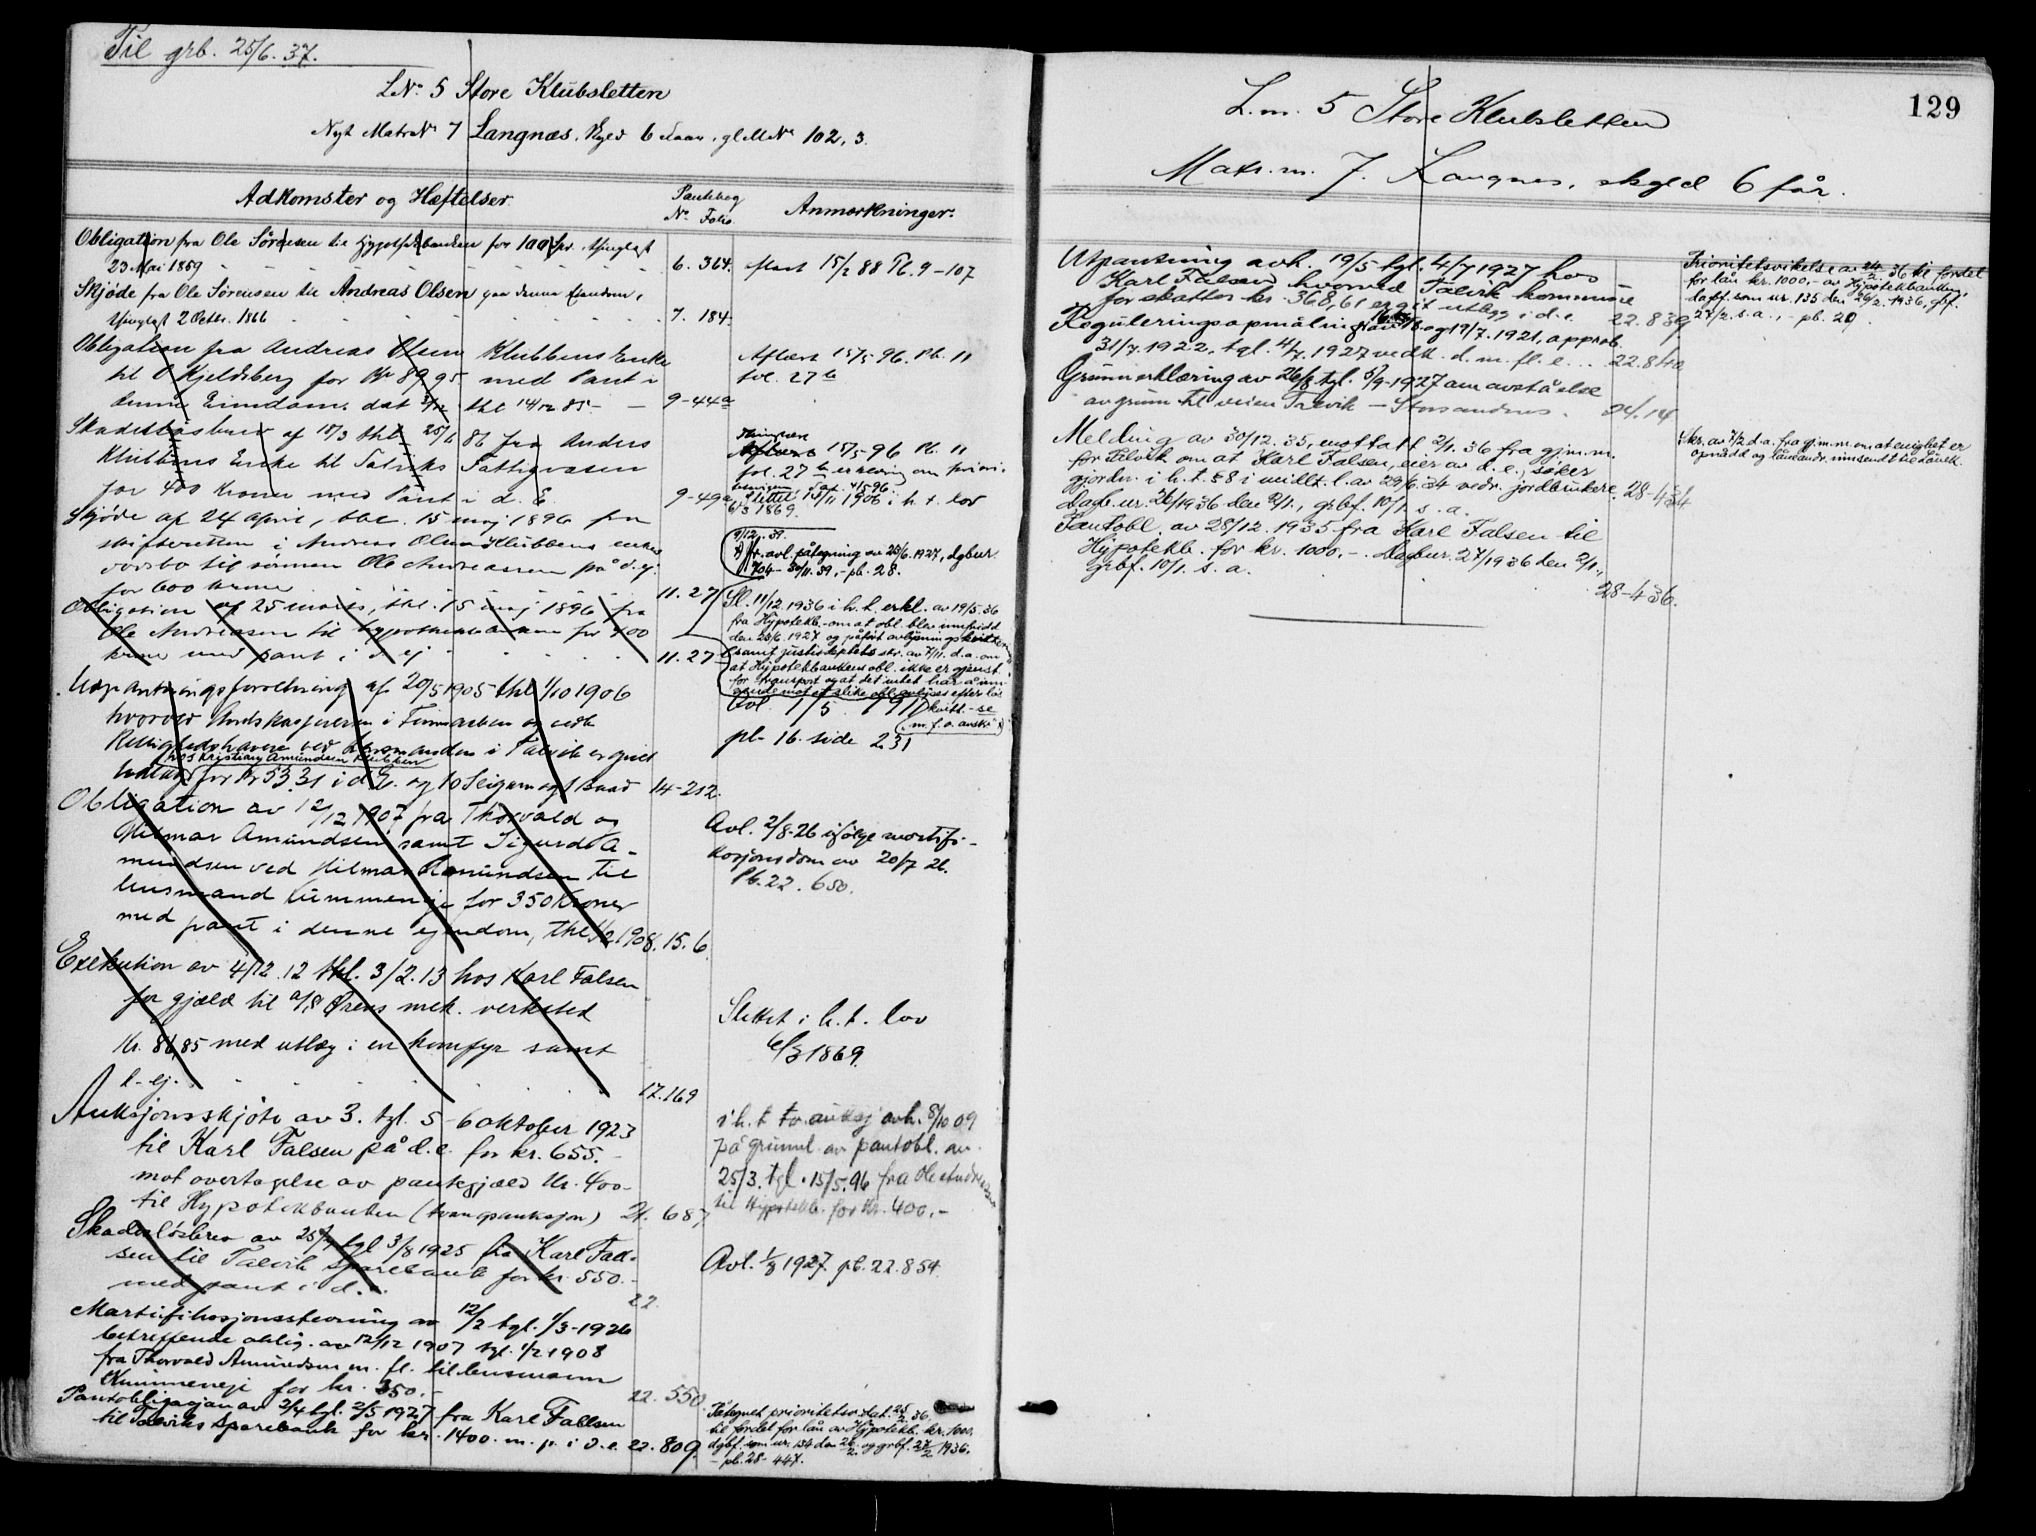 Til grb. 25/6. 37.
LNo 5 Store Klubsletten
Nyt MatrNo 7 Langnæs. Skyld 6 Faar. gl MNo 102, 3.
Adkomster og Hæftelser.
Pantebog
No Folio
Anmærkninger.
Obligation fra Ole Sörensen til Hypothekbanken for 100 Spd. thinglyst
23 Mai 1859
6. 364.
afløst 15/2 88 Pb. 9-107
Skjöde fra Ole Sörensen til Andreas Olsen paa denne Eiendom,
thinglyst 2 Octbr. 1866
7. 184.
Obligation fra Andreas Olsen Klubbens Enke
til O Kjeldsberg for Kr 89,95 med Pant i
denne Eiendom. dat thl 14/12 85
9-44a
Aflæst 15/5 96. Pb. 11
fol. 27b
Skadesløsbrev af 18/3 thl. 25/6 86 fra Anders
Klubbens Enke til Talviks Fattigvæsen
for 400 Kroner med Pant i d. E.
9-49a
15/5-96 Pb. 11
fol. 27b erklæring om priori-
Slettet 13/11 1906 i h. t. lov
6/3 1869.
Skjøde af 24 april, thl. 15 maj 1896 fra
skifteretten i Andreas Olsen Klubbens enkes
dødsbo til sønnen Ole Andreassen på d. ej.
for 600 kroner
11. 27
9/12. 39.
fr. avl. påtegning av 25/6. 1927, dgbnr.
704 - 30/11. 39, - pb. 28.
Obligation af 25 marts, thl. 15 maj 1896 fra
Ole Andreasen til hypothekbanken for 400
kroner med pant i d. ej.
11. 27
Sl. 11/12 1936 i h. t. erkl. av 19/5. 36
fra Hypotekb. om at obl. blev innfridd
den 25/6. 1927 og påført avlysningskvittering
samt justisdeptets skr. av 7/11. d. a. om
at Hypotekbankens obl. ikke er gjenst.
for transport og at det intet har å inn-
vende mot at slike obl. avlyses efter lov
Utpantningsforretning af 20/5 1905 thl 1/10 1906
hvorved Amtskassereren i Finmarken og vedk
Rettighedshavere ved Lensmanden i Talvik er givet
hos Kristian Amundsen Klubben
Udlæg for Kr 53,31 i d. E. og 10 Seigarn og 1 baad
14-212.
Avl. 1/5 1911 kvitt. se
m. f. a. avskr.
pb. 16. side 231
Obligation av 12/12 1907 fra Thorvald og
Hilmar Amundsen samt Sigurd A-
mundsen ved Hilmar Amundsen til
lensmand Kummeneje for 350 Kroner
med pant i denne ejendom, thl. 1/2 1908. 15. 6.
Avl. 2/8-26 ifølge mortifi-
kasjonsdom av 20/7 26.
Pb. 22. 650.
Exekution av 4/12. 12 thl. 3/2. 13 hos Karl Falsen
for gjæld til a/s Ørens mek. verksted
Kr. 86,85 med utlæg i en komfyr samt
d. ej.
17. 169
Slettet i h. t. lov
6/3 1869.
Auksjonsskjøte av 3. tgl. 5-6 oktober 1923
til Karl Falsen på d. e. for kr. 655.-
mot overtagelse av pantegjæld kr. 400-
til Hypotekbanken (tvangsauksjon) 21. 687
i h. t tv. auksj avh. 8/10 09
på grunnl. av pantobl. av
25/3. tgl. 15/5. 96 fra Ole Andreassen
til Hypotekb. for kr. 400.-
Skadesløsbrev av 25/7 tgl 3/8 1925 fra Karl Fal-
sen til Talvik Sparebank for kr. 550.-
med pant i d. e.
22.
Avl. 1/8 1927. pb. 22. 854.
Mortifikasjonsstevning av 12/2 tgl. 1/3-1926
betreffende oblig. av 12/12 1907 tgl. 1/2 1908
fra Thorvald Amundsen m. fl. til lensmann
Kummeneje for kr. 350.-
22. 550.
Pantobligasjon av 2/4 tgl. 2/5 1927 fra Karl Fallsen
til Talviks Sparebank for kr. 1400. m. p. i d. e. 22. 809.
Påtegnet prioritetsv. dat. 25/2. 36.
til fordel for lån av Hypotekb. kr. 1000.
dgbf. som nr. 134 den 26/2. og grbf. 27/2 1936.
- pb. 28- 447.
129
L.nr. 5 Store Klubsletten
Matr. nr. 7. Langnes, skyld 6 får.
Utpantning avh. 19/5 tgl. 4/7 1927 hos
Karl Falsen hvorved Talvik kommune
for skatter kr. 368,61 er git utlegg i d. e.
22. 839.
Prioritetsvikelse av 24/2. 36 til fordel
for lån kr. 1000,- av Hypotekbanken,
dagbf. som nr. 135 den 26/2. 1936, grbf.
27/2. s. a., - pb. 29
Reguleringsopmåling av og 19/7. 1921, approb.
31/7. 1922, tgl. 4/7. 1927 vedk. d. m. fl. e. .. 22. 840.
Grunnerklæring av 26/8 tgl. 5/9-1927 om avståelse
av grunn til veien Talvik - Storsandnes. 24. 14
Melding av 30/12. 35, mottatt 2/1. 36 fra gj.m.n.
for Talvik om at Karl Falsen, eier av d. e., søker
gjordn. i h. t. § 8 i midlt. l. av 29/6. 34 vedr. jordbrukere.
Dagb. nr. 26/1936 den 2/1., grbf. 10/1. s. a.
28-434
Skr. av 7/2 d. a. fra gj.m.n. om at enighet er
opnådd og låneandr. innsendt til Lånek.
Pantobl. av 28/12. 1935 fra Karl Falsen til
Hypotekb. for kr. 1000,-. Dagbnr. 27/1936 den 2/1.,
grbf. 10/1. s. a.
28-436.